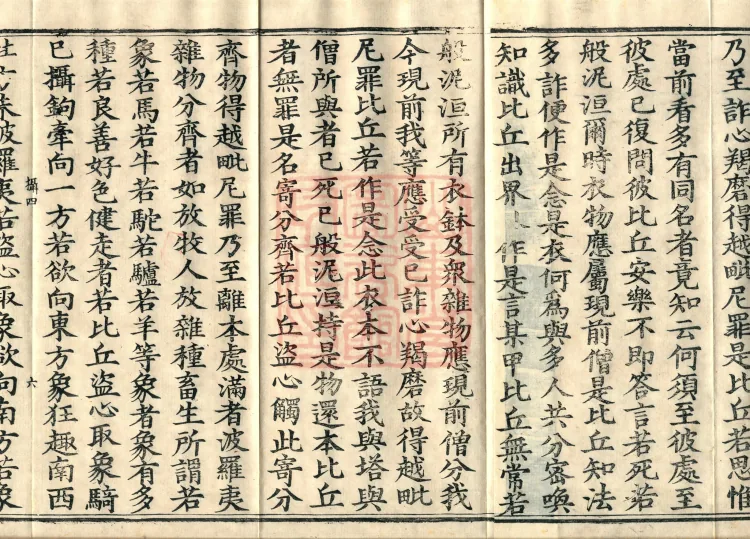 乃至詐心羯磨得越毗尼罪是比丘若思惟
當前看多有同名者竟知云何須至彼處至
彼處已復問彼比丘安樂不即答言若死若
般泥洹爾時衣物應屬現前僧是比丘知法
多詐便作是念是衣何為與多人共分密喚
知識比丘出界 作是言某甲比丘無常若
般泥洹所有衣鉢及眾雜物應現前僧分我
今現前我等應受受已詐心羯磨故得越毗
尼罪比丘若作是念此衣本不語我與塔與
僧所與者已死已般泥洹持是物還本比丘
者無罪是名寄分齊若比丘盜心觸此寄分
齊物得越毗尼罪乃至離本處滿者波羅夷
雜物分齊者如放牧人放雜種畜生所謂若
象若馬若牛若駝若驢若羊等象者象有多
種若良善好色健走者若比丘盜心取象騎
已攝鉤牽向一方若欲向東方象狂趣南西
攝四 六
波羅夷若盜心取象欲向南方若象